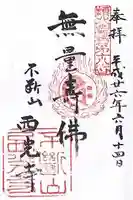 奉拝
平成廿六年六月十四日
無量寿佛
不断山
西光寺